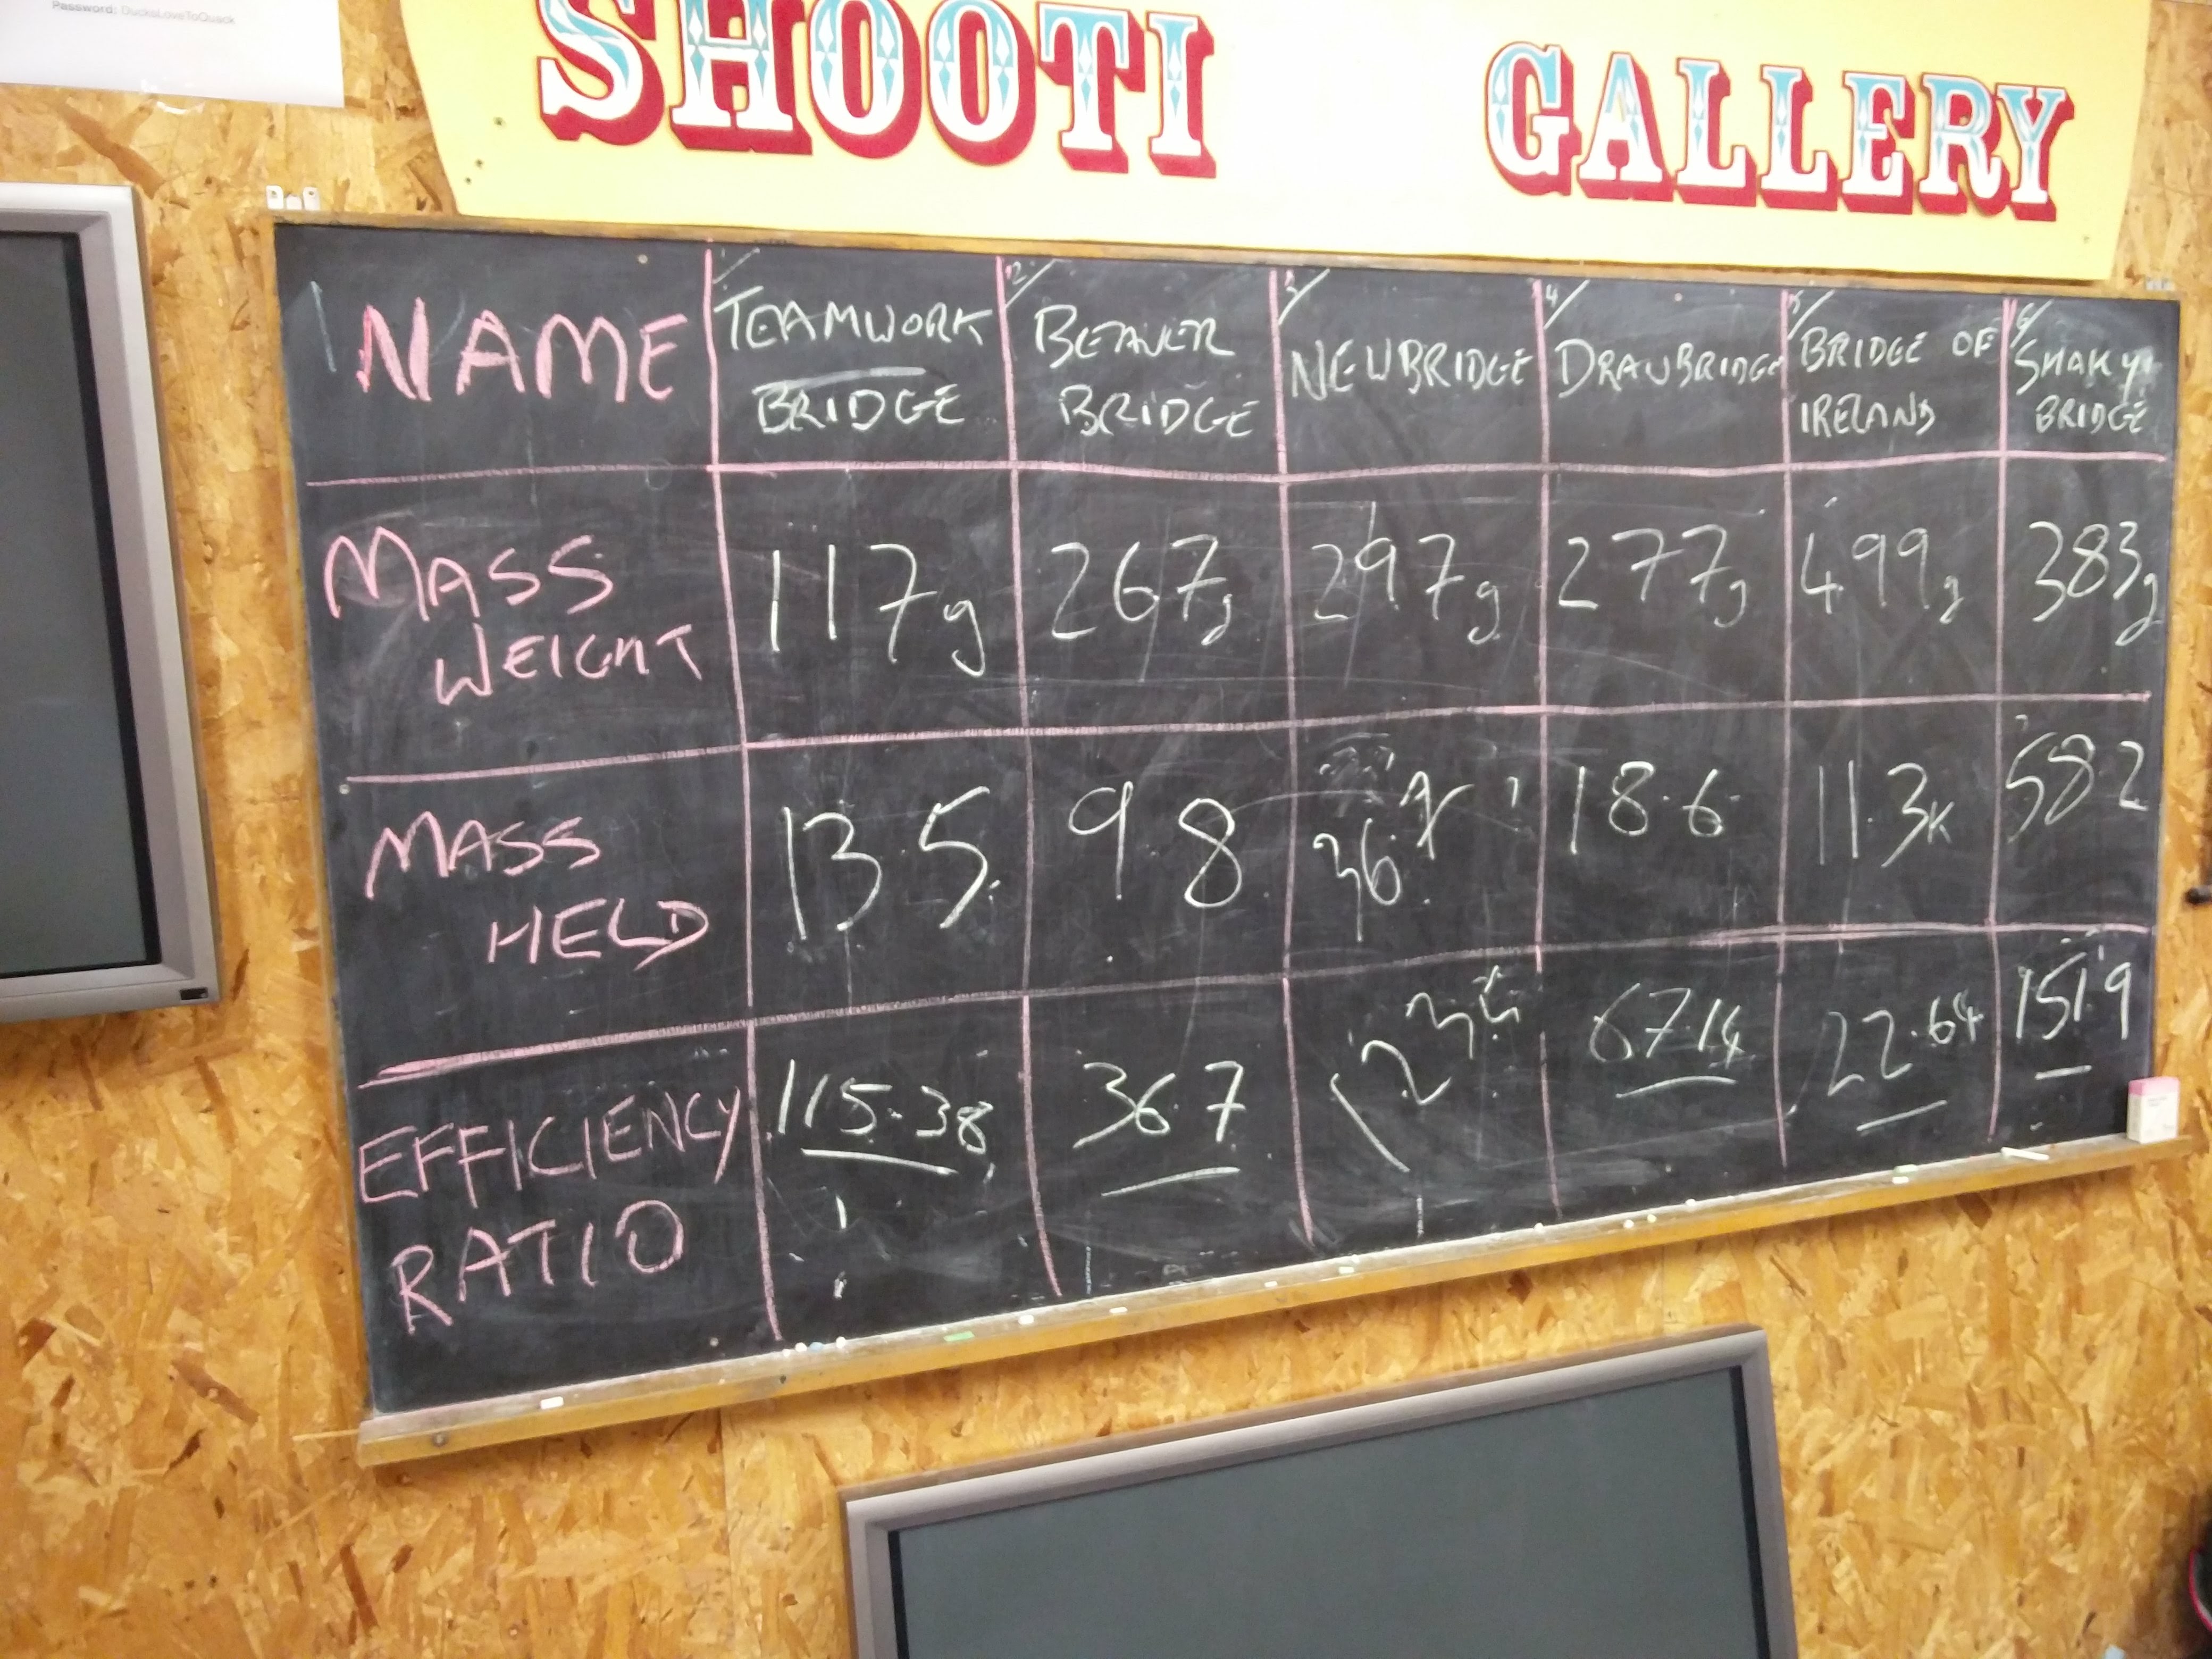 Password: DucksLoveToQuack
SHOOTI GALLERY
NAME
1/ TEAMWORK
BRIDGE
2/ BEAVER
BRIDGE
3/ NEWBRIDGE
4/ DRAWBRIDGE
5/ BRIDGE OF
IRELAND
6/ SHAKY
BRIDGE
MASS
WEIGHT
117g
267g
297g
277g
499g
383g
MASS
HELD
13.5
9.8
18.6
11.3K
58.2
EFFICIENCY
RATIO
115.38
36.7
67.14
22.64
151.9